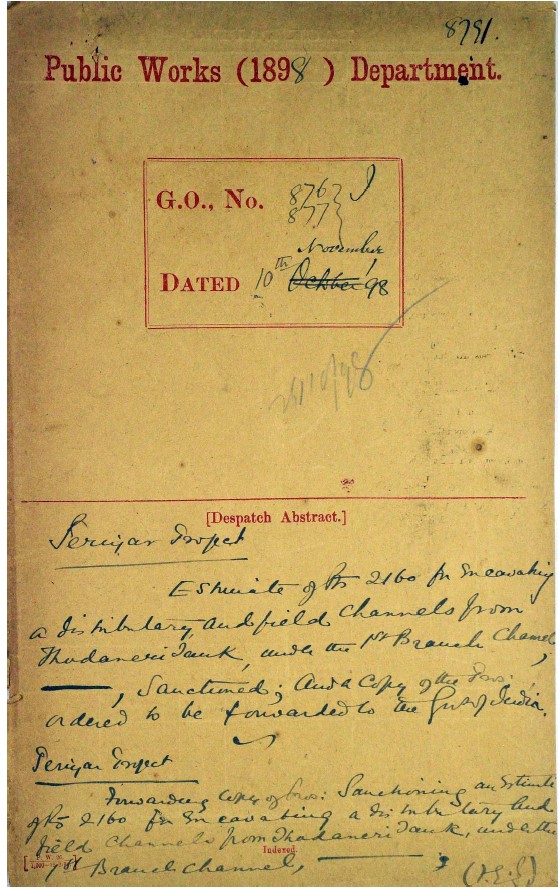 8791.
Public Works (1898) Department.
G.O., No. 876 I
877
November
DATED 10th October 98
28/10/98
[Despatch Abstract.]
Periyar Project
Estimate of Rs 2160 for Excavating
a distributary, and field Channels from
Thadaneri Tank, under the 1st Branch Channel,
, Sanctioned; And a Copy of the Pro:
ordered to be forwarded to the Govt of India.
Periyar Project
Forwarding Copy of Pro: Sanctioning an Estimate
of Rs 2160 for Excavating a distributary and
field Channels from Thadaneri Tank, under the
Indexed.
1st Branch Channel,